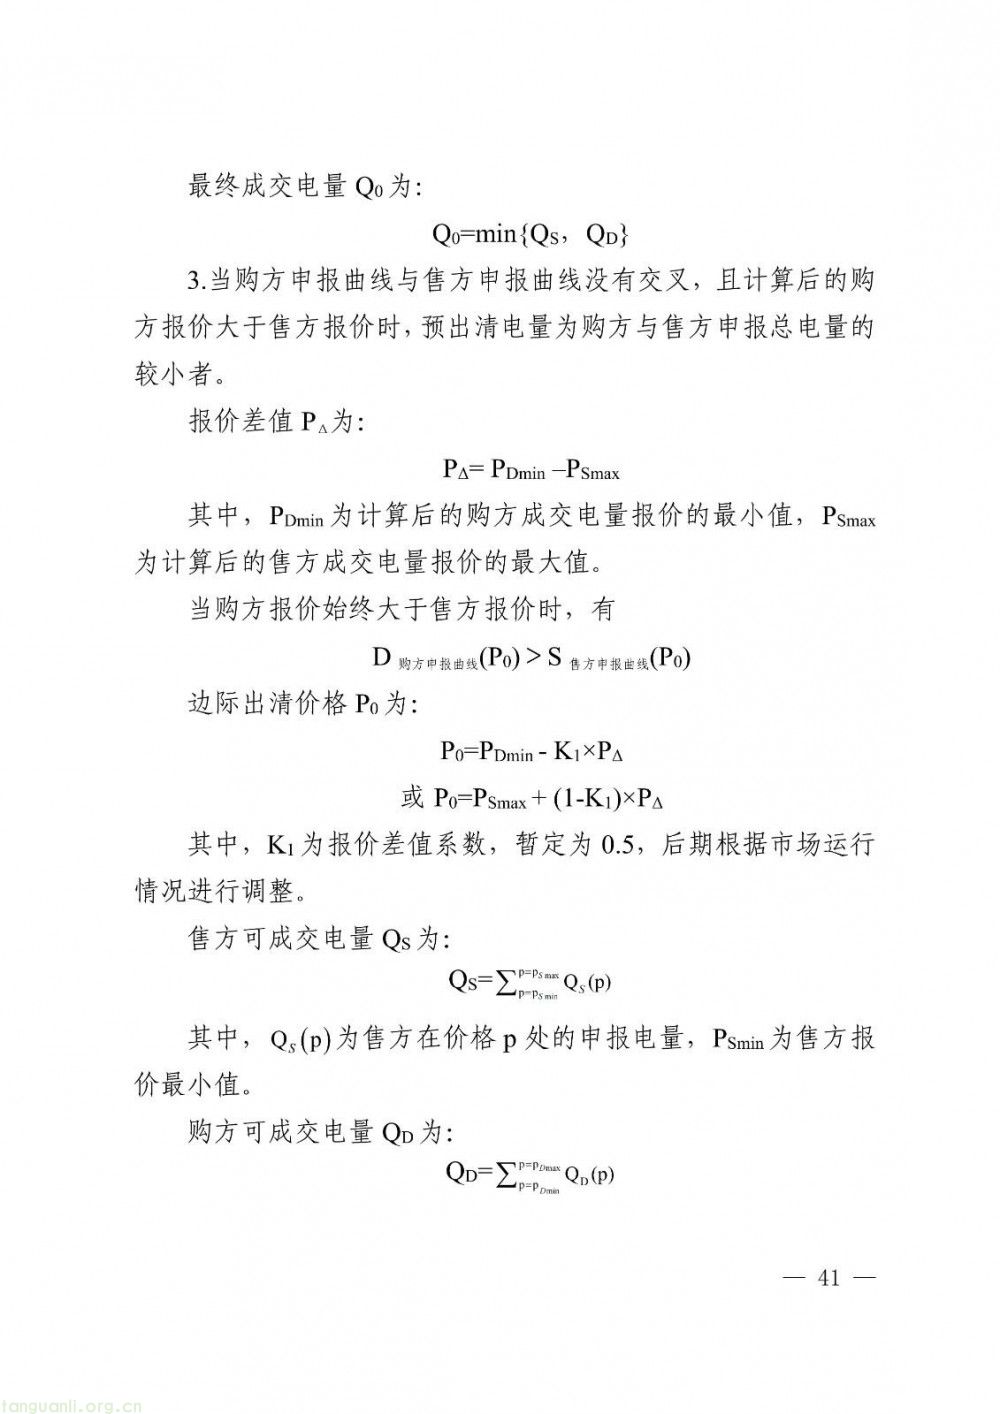 最终成交电量 Q₀ 为：
Q₀=min{Qs，QD}
3.当购方申报曲线与售方申报曲线没有交叉，且计算后的购
方报价大于售方报价时，预出清电量为购方与售方申报总电量的
较小者。
报价差值 P△为：
PΔ= PDmin –PSmax
其中，PDmin 为计算后的购方成交电量报价的最小值，PSmax
为计算后的售方成交电量报价的最大值。
当购方报价始终大于售方报价时，有
D 购方申报曲线(P₀) > S 售方申报曲线(P₀)
边际出清价格 P₀ 为：
P₀=PDmin - K₁×PΔ
或 P₀=PSmax + (1-K₁)×PΔ
其中，K₁ 为报价差值系数，暂定为 0.5，后期根据市场运行
情况进行调整。
售方可成交电量 Qs 为：
Qs=∑p=pSmax p=pSmin QS(p)
其中，QS(p)为售方在价格 p 处的申报电量，PSmin 为售方报
价最小值。
购方可成交电量 QD 为：
QD=∑p=pDmax p=pDmin QD(p)
— 41 —
tanguanli.org.cn